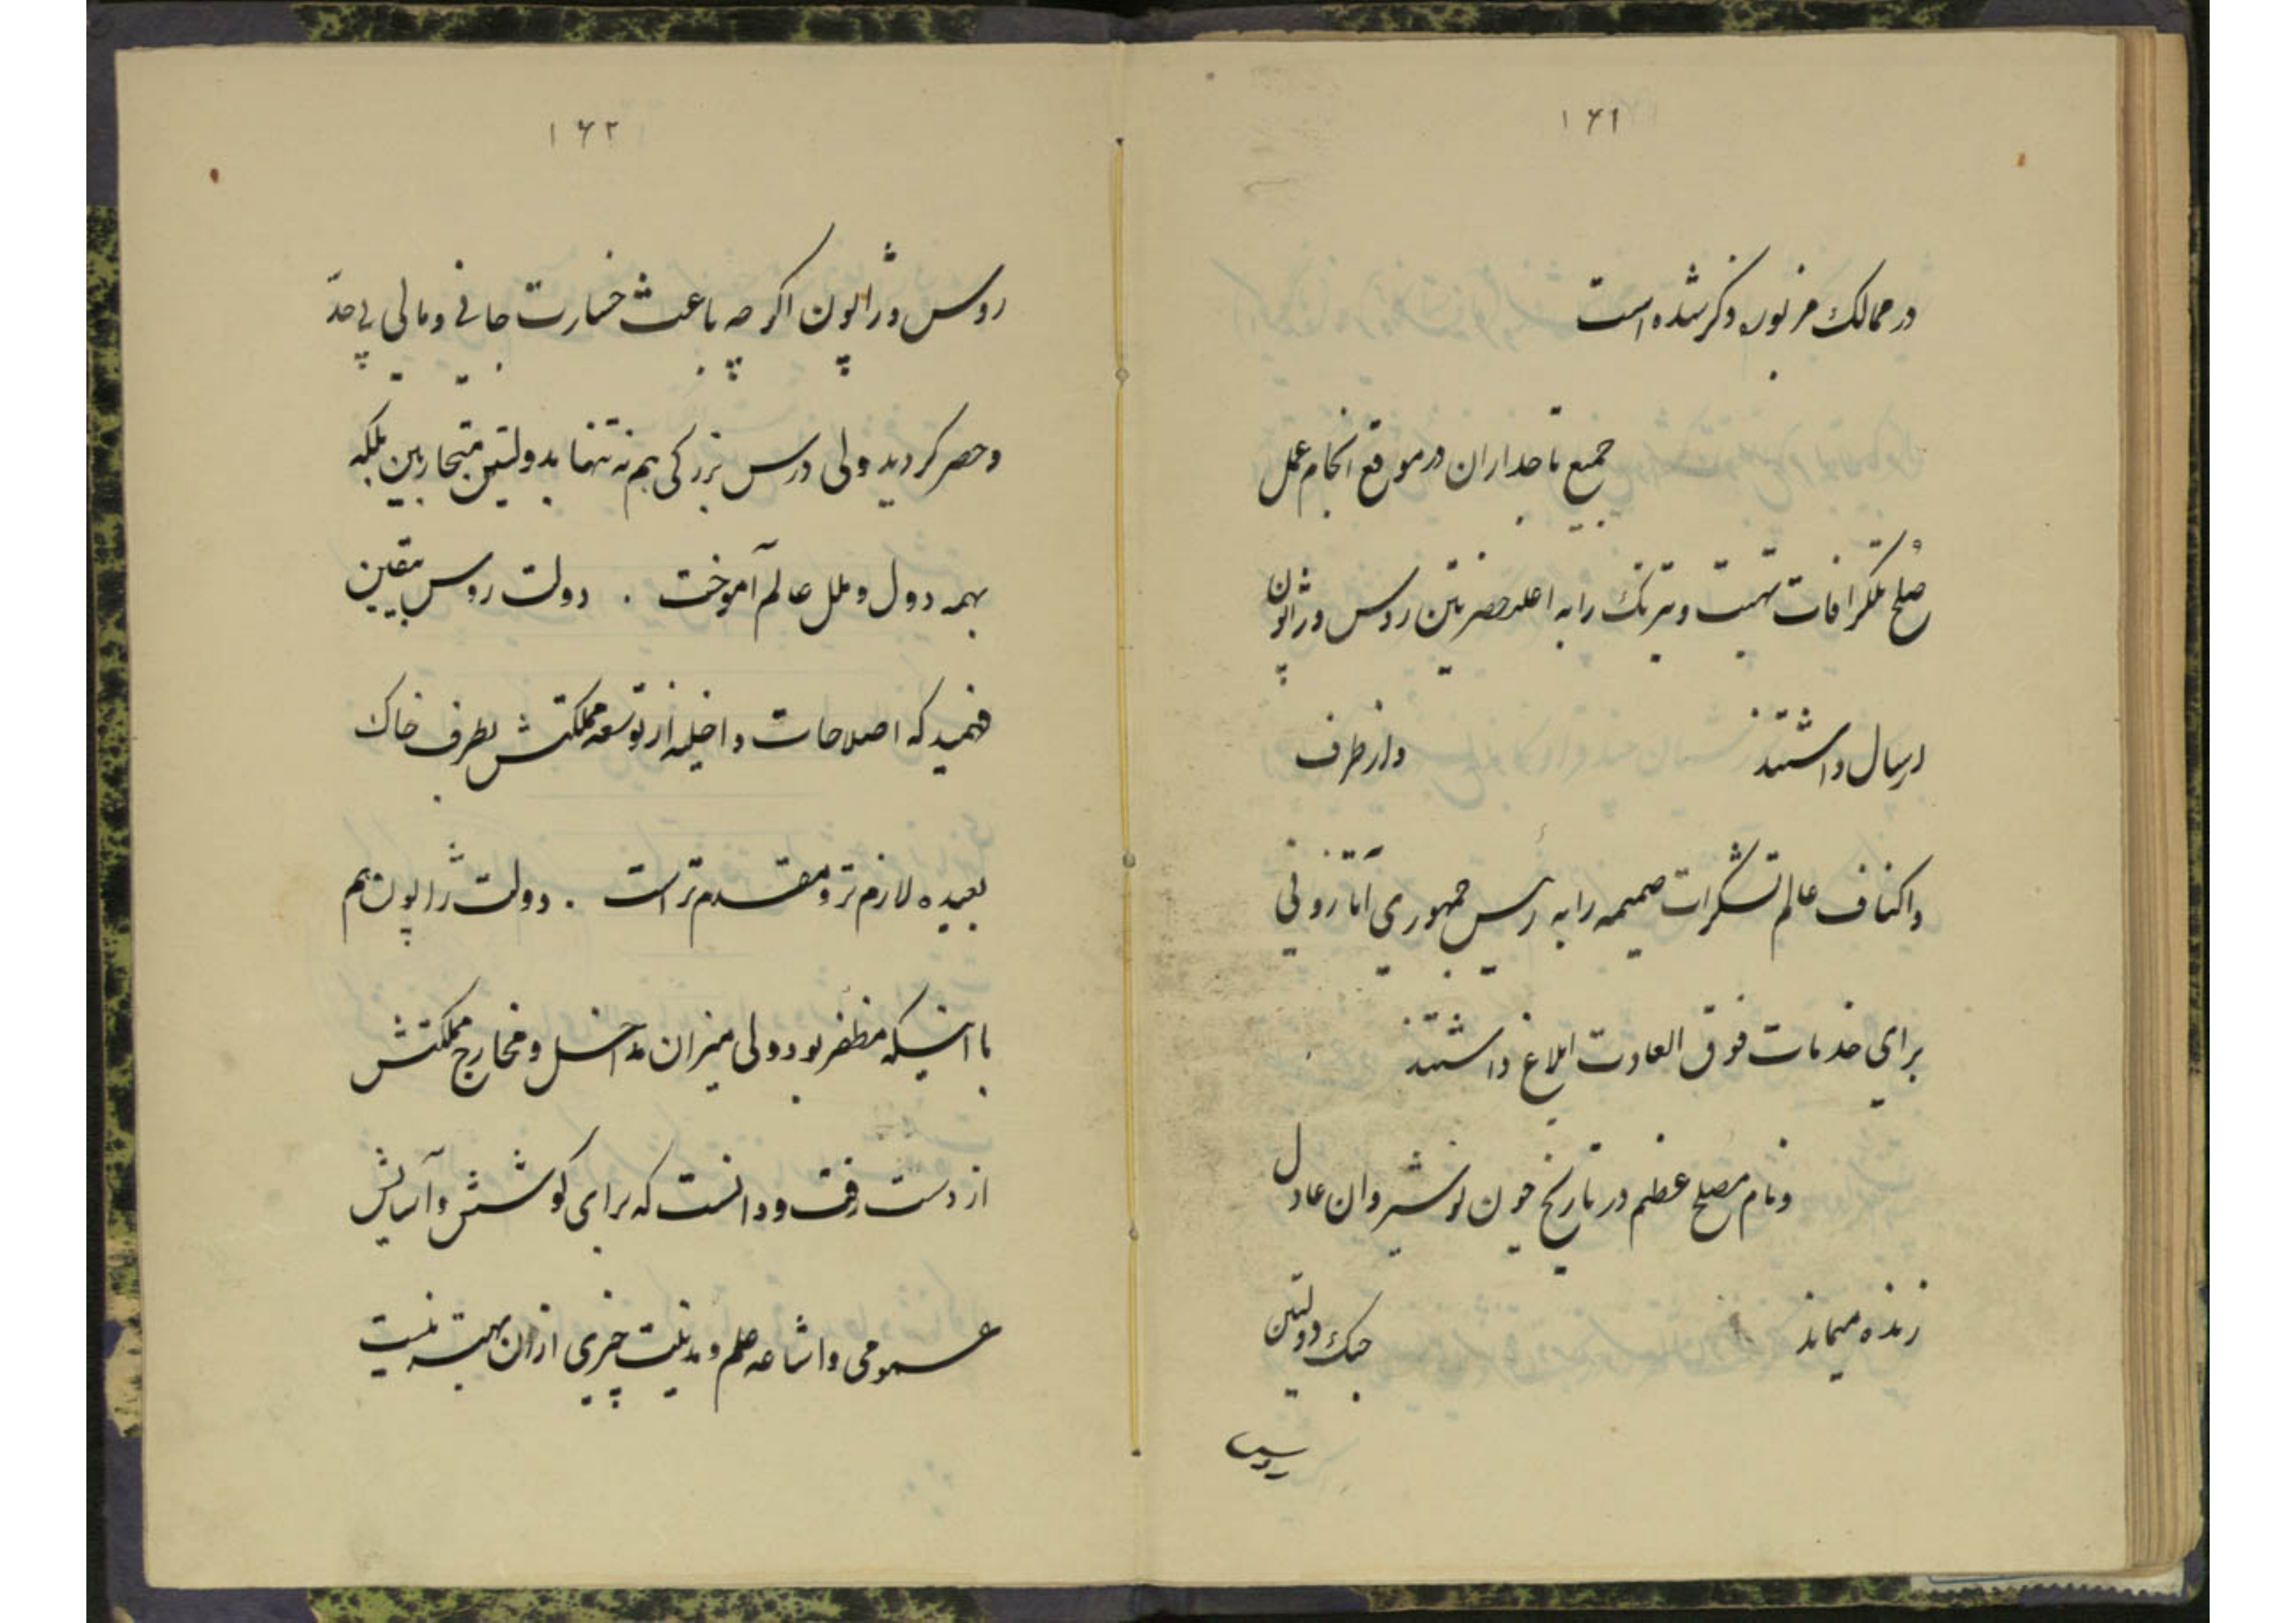 ۱۶۱
در ممالک مزبوره ذکر شده است
جمیع تاجداران در موقع انجام عمل
صلح تلگرافات تهنیت و تبریک را به اعلیحضرتین روس و ژاپون
ارسال داشتند و از طرف
و اکناف عالم تشکرات صمیمه را به رئیس جمهوری آتازونی
برای خدمات فوق العادت ابلاغ داشتند
و نام مصلح عظم در تاریخ چون نوشیروان عادل
زنده میماند جنک دولتین
روس
۱۶۲
روس و ژاپون اگر چه باعث خسارت جانی و مالی بی حدّ
و حصر گردید ولی درس بزرگی هم نه تنها بدولتین متحاربین بلکه
بهمه دول و ملل عالم آموخت . دولت روس بیقین
فهمید که اصلاحات داخلیه از توسعه مملکتش بطرف خاک
بعیده لازم تر و مقدم تر است . دولت ژاپون هم
با اینکه مظفر بود ولی میزان مداخل و مخارج مملکتش
از دست رفت و دانست که برای کوشش و آسایش
عمومی و اشاعه علم و مدنیت چیزی از ان بهتر نیست